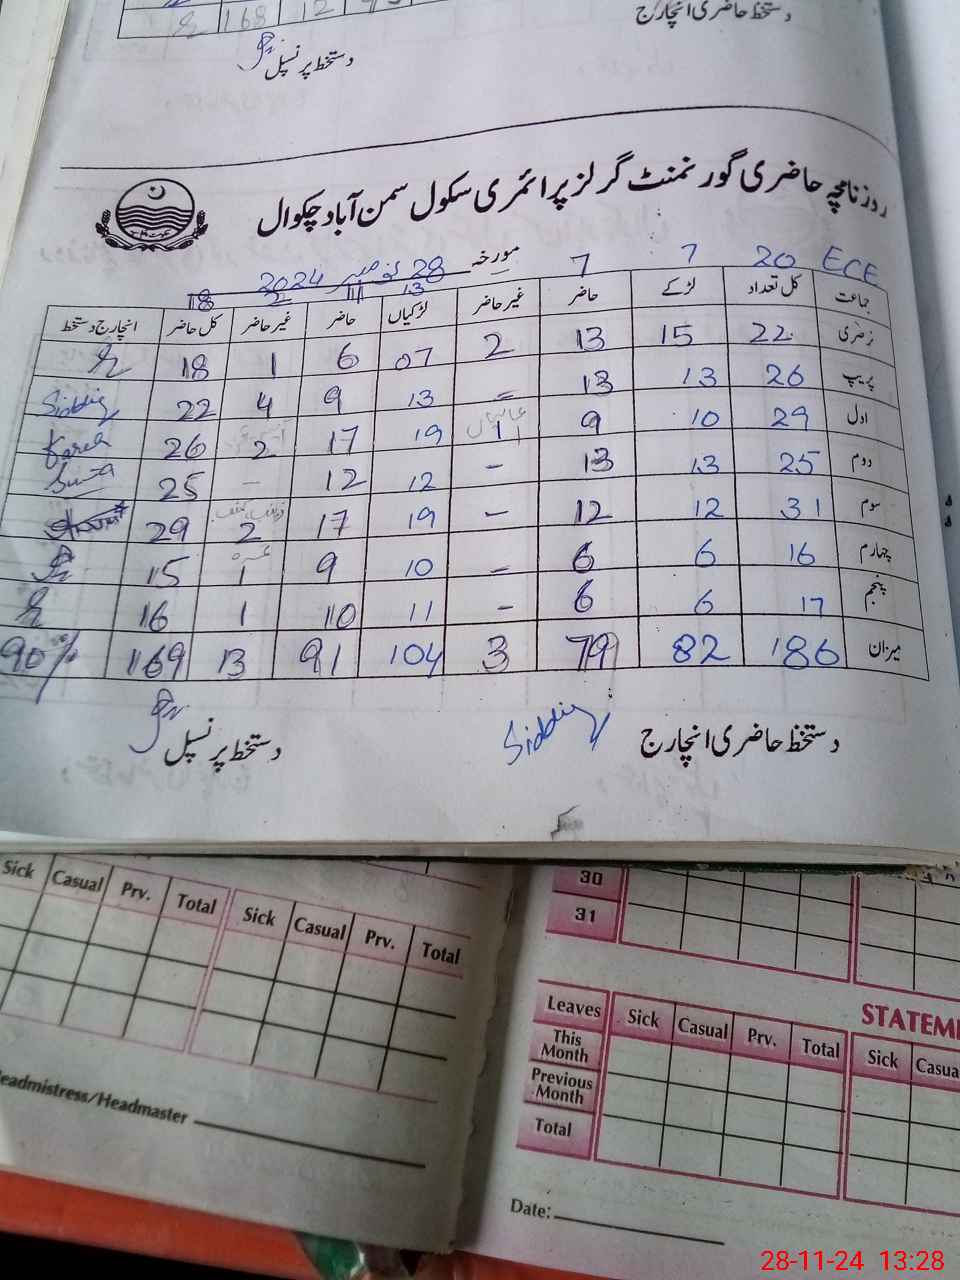 168 12
دستخط حاضری انچارج
دستخط پرنسپل
روزنامچہ حاضری گورنمنٹ گرلز پرائمری سکول سمن آباد چکوال
مورخہ 28 نومبر 2024
ECE 20 7 7 13 11 2 18
جماعت کل تعداد لڑکے حاضر غیر حاضر لڑکیاں حاضر غیر حاضر کل حاضر انچارج دستخط
نرسری 22 15 13 2 07 6 1 18
پریپ 26 13 13 - 13 9 4 22 Siddiq
اول 29 10 9 1 19 17 2 26
دوم 25 13 13 - 12 12 - 25
سوم 31 12 12 - 19 17 2 29
چہارم 16 6 6 - 10 9 1 15
پنجم 17 6 6 - 11 10 1 16
میزان 186 82 79 3 104 91 13 169 90%
دستخط حاضری انچارج Siddiq
دستخط پرنسپل
Sick Casual Prv. Total Sick Casual Prv. Total
eadmistress/Headmaster
30
31
STATEM
Leaves Sick Casual Prv. Total Sick Casua
This Month
Previous Month
Total
Date:
28-11-24 13:28